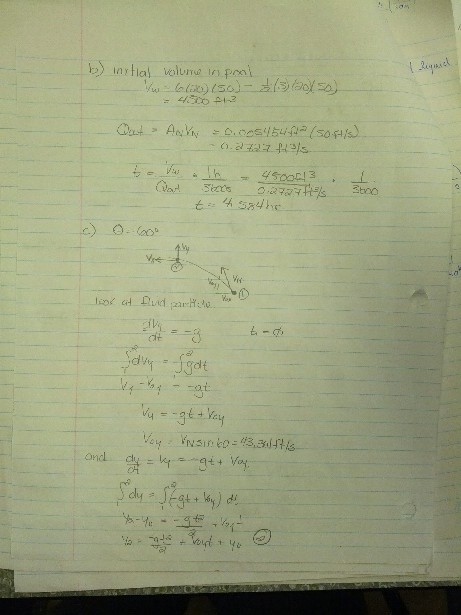 b) initial volume in pool
Vw = 6(20)(50) - ½(3)(20)(50)
= 4500 ft³
Qout = ANVN = 0.005454 ft² (50 ft/s)
= 0.2727 ft³/s
t = Vw/Qout * 1h/3600s = 4500 ft³/0.2727 ft³/s * 1/3600
t = 4.584 hr
c) θ = 60°
Vy
Vx
2
VN
Voy
Vox
1
look at fluid particle
dVy/dt = -g
∫dVy = ∫-gdt
Vy - Voy = -gt
Vy = -gt + Voy
Voy = VN sin 60 = 43.301 ft/s
and dy/dt = Vy = -gt + Voy
∫dy = ∫(-gt + Voy) dt
y2 - y0 = -gt²/2 + Voyt
y2 = -gt²/2 + Voyt + y0
liquid